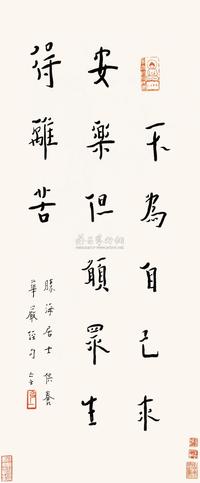 不為自己求
安樂但願眾生
得離苦
勝海居士供養
華嚴經句